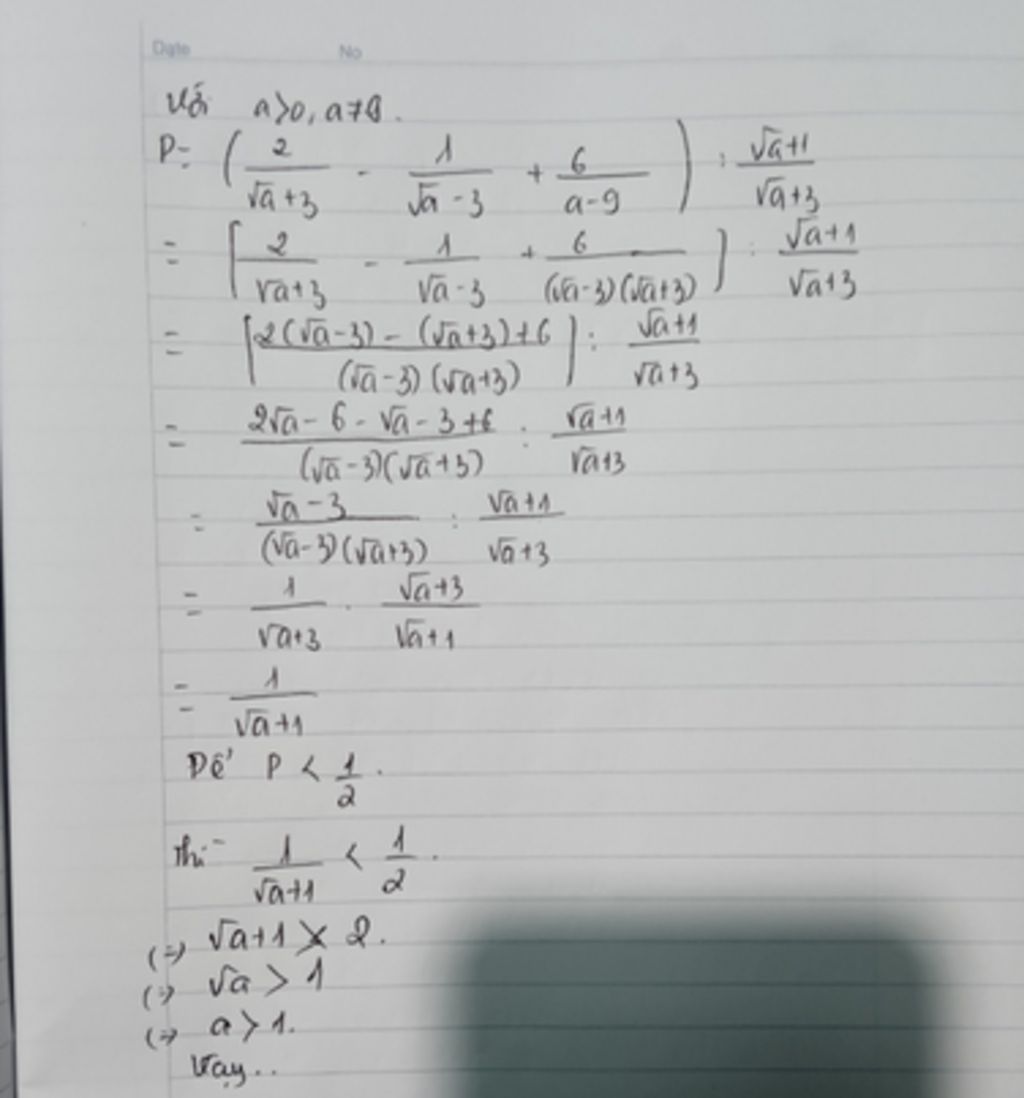 Date No
Với a>0, a≠9.
P= (2/(√a+3) - 1/(√a-3) + 6/(a-9)) : (√a+1)/(√a+3)
= [2/(√a+3) - 1/(√a-3) + 6/((√a-3)(√a+3))] : (√a+1)/(√a+3)
= [(2(√a-3) - (√a+3)+6)/((√a-3)(√a+3))] : (√a+1)/(√a+3)
= (2√a - 6 - √a - 3 + 6)/((√a-3)(√a+3)) : (√a+1)/(√a+3)
= (√a-3)/((√a-3)(√a+3)) : (√a+1)/(√a+3)
= 1/(√a+3) . (√a+3)/(√a+1)
= 1/(√a+1)
Để P < 1/2.
thì 1/(√a+1) < 1/2.
(=) √a+1 > 2.
(=) √a > 1
(=) a > 1.
Vậy..